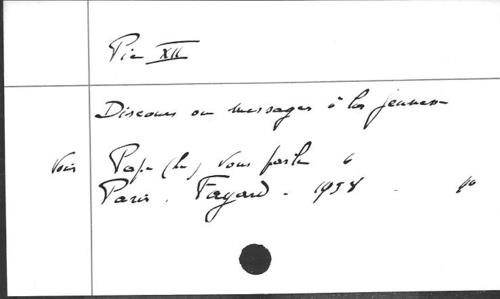 Pie XII
Discours ou messages à la jeunesse
Voir Pape (Le) vous parle
Paris. Fayard. 1958.